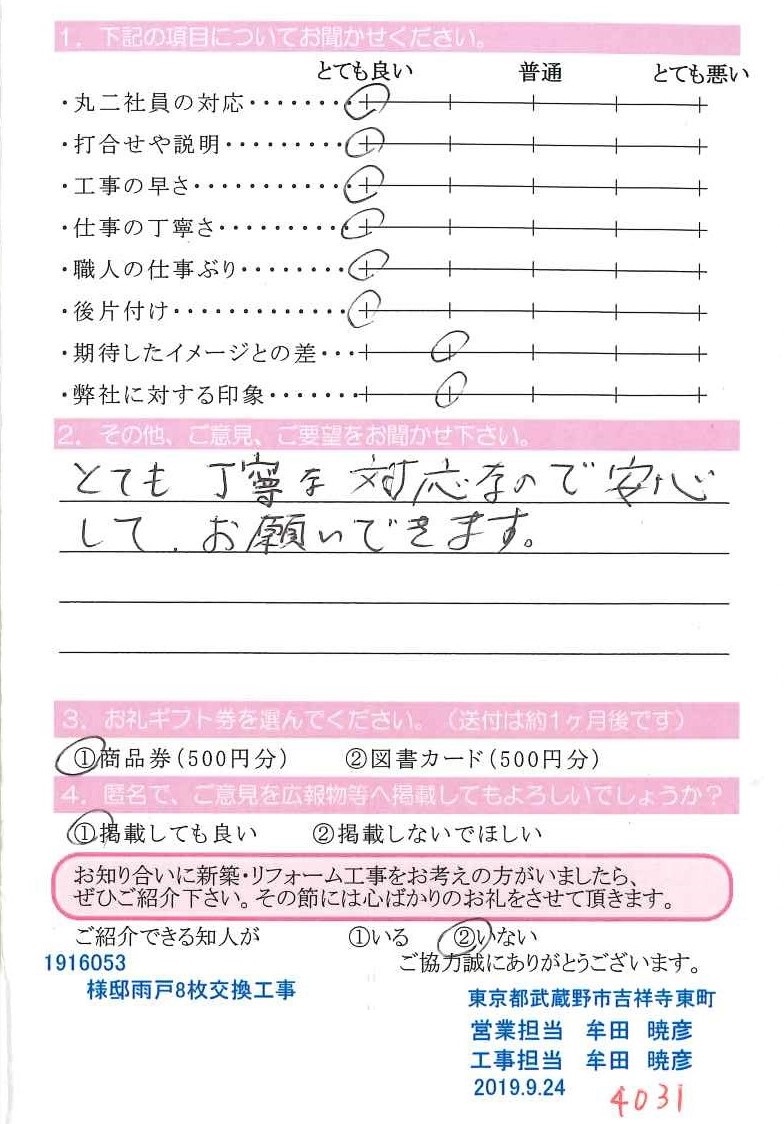 1. 下記の項目についてお聞かせください。
とても良い 普通 とても悪い
・丸二社員の対応・・・・・・・
・打合せや説明・・・・・・・・・
・工事の早さ・・・・・・・・・・・
・仕事の丁寧さ・・・・・・・・・
・職人の仕事ぶり・・・・・・・・
・後片付け・・・・・・・・・・・・・
・期待したイメージとの差・・・
・弊社に対する印象・・・・・・・
2. その他、ご意見、ご要望をお聞かせ下さい。
とても 丁寧な 対応なので 安心
して、お願いできます。
3. お礼ギフト券を選んでください。（送付は約1ヶ月後です）
①商品券（500円分） ②図書カード（500円分）
4. 匿名で、ご意見を広報物等へ掲載してもよろしいでしょうか？
①掲載しても良い ②掲載しないでほしい
お知り合いに新築・リフォーム工事をお考えの方がいましたら、
ぜひご紹介下さい。その節には心ばかりのお礼をさせて頂きます。
ご紹介できる知人が ①いる ②いない
1916053 ご協力誠にありがとうございます。
様邸雨戸8枚交換工事
東京都武蔵野市吉祥寺東町
営業担当 牟田 暁彦
工事担当 牟田 暁彦
2019.9.24
4031